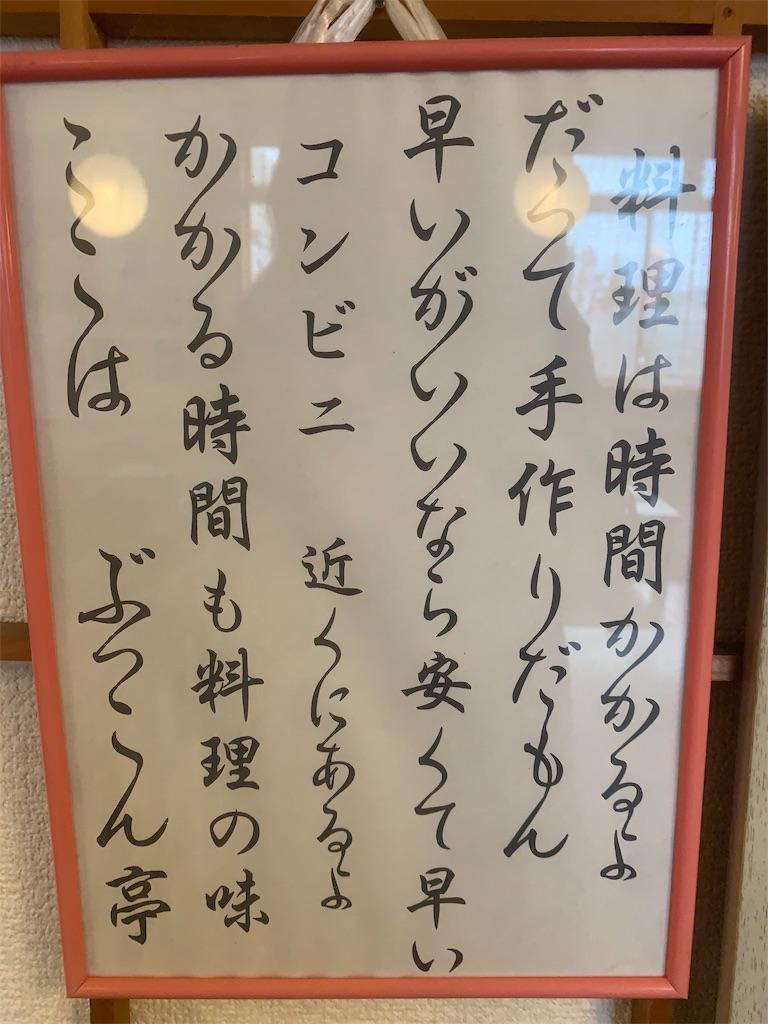 料理は時間かかるよ
だって手作りだもん
早いがいいなら安くて早い
コンビニ 近くにあるよ
かかる時間も料理の味
ここは ぶっこん亭